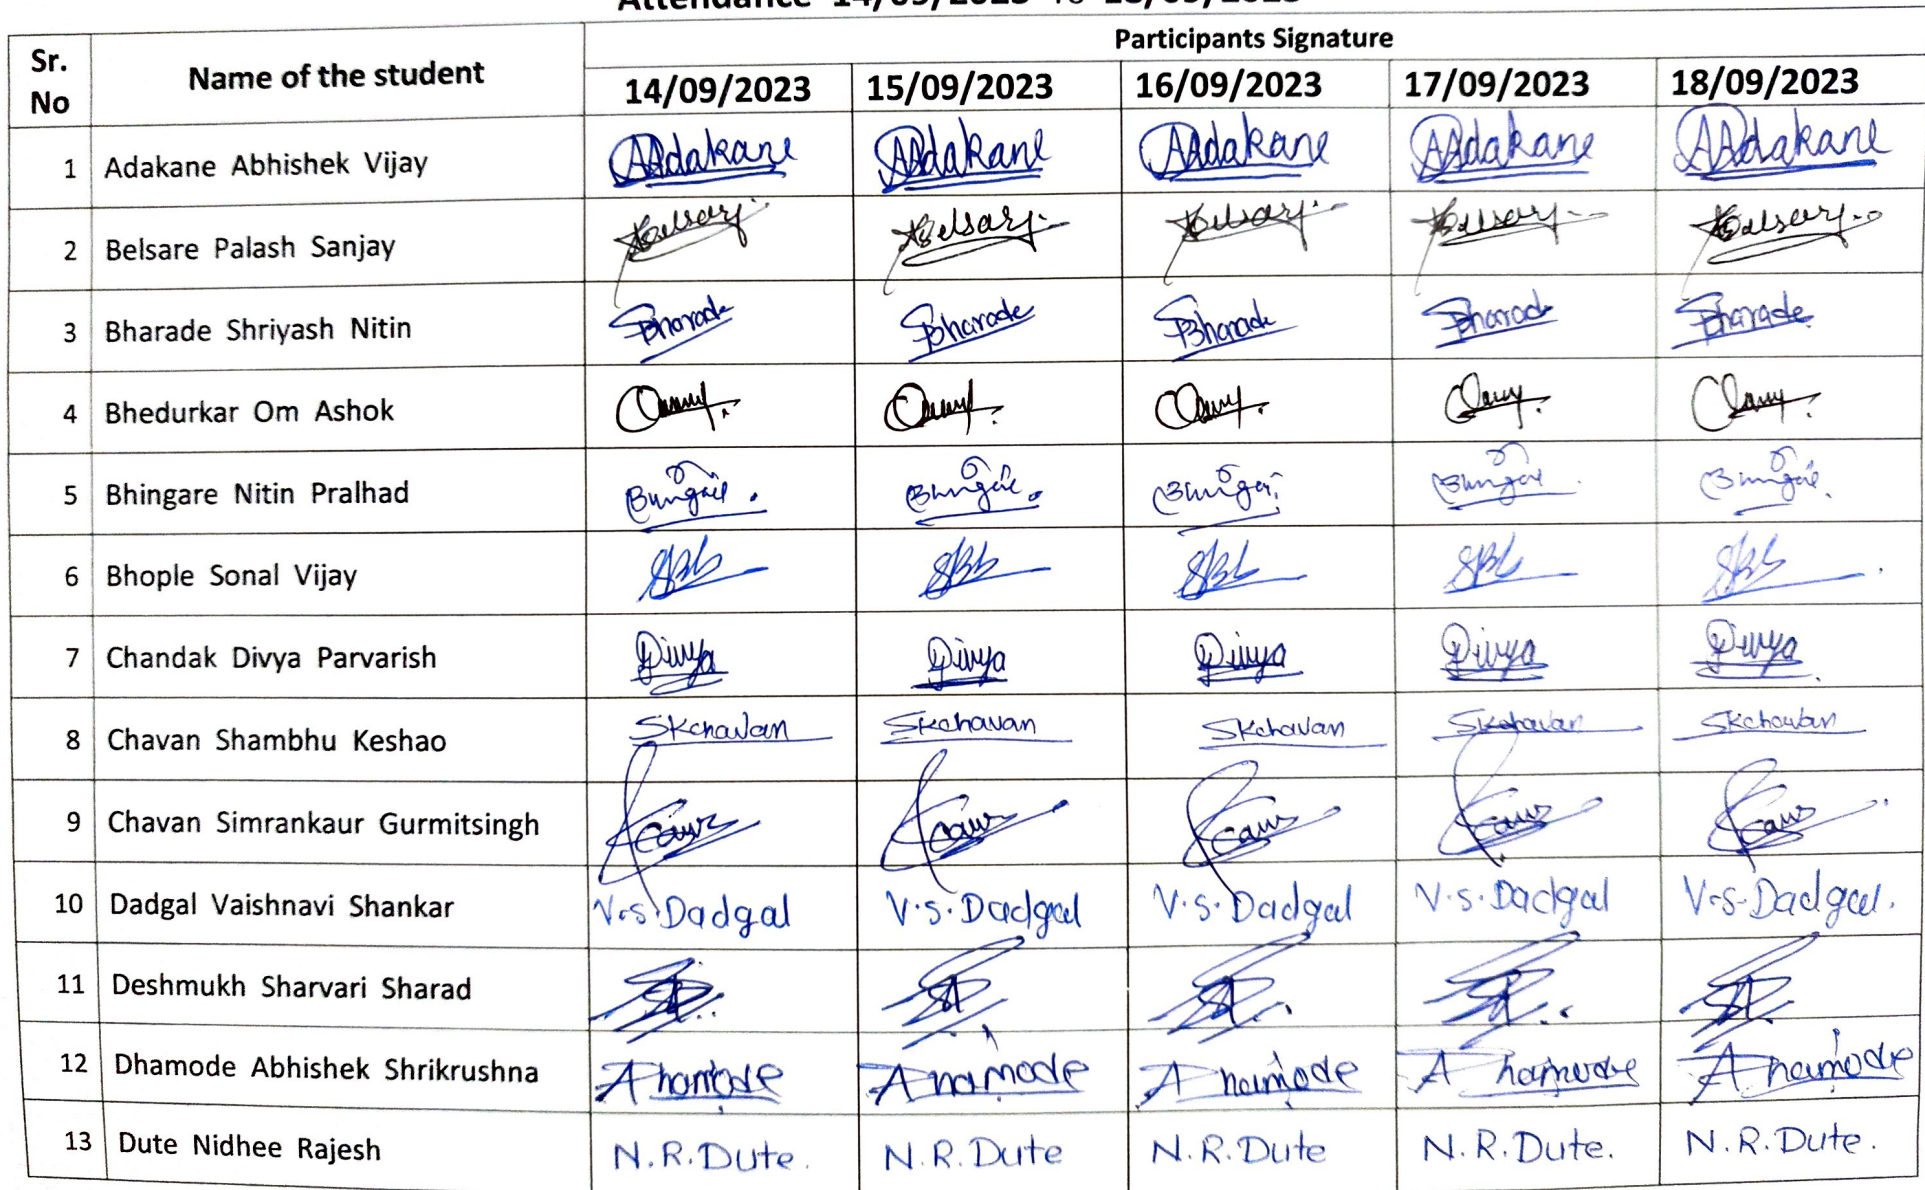 Attendance 14/09/2023 To 18/09/2023
Sr. No Name of the student Participants Signature
14/09/2023 15/09/2023 16/09/2023 17/09/2023 18/09/2023
1 Adakane Abhishek Vijay AAdakane AAdakane AAdakane AAdakane AAdakane
2 Belsare Palash Sanjay
3 Bharade Shriyash Nitin Bharade Bharade Bharade Bharade Bharade
4 Bhedurkar Om Ashok
5 Bhingare Nitin Pralhad
6 Bhople Sonal Vijay
7 Chandak Divya Parvarish Divya Divya Divya Divya Divya
8 Chavan Shambhu Keshao SKchavan SKchavan SKchavan SKchavan SKchavan
9 Chavan Simrankaur Gurmitsingh
10 Dadgal Vaishnavi Shankar V.S.Dadgal V.S.Dadgal V.S.Dadgal V.S.Dadgal V.S.Dadgal.
11 Deshmukh Sharvari Sharad
12 Dhamode Abhishek Shrikrushna
13 Dute Nidhee Rajesh N.R.Dute. N.R.Dute N.R.Dute N.R.Dute. N.R.Dute.